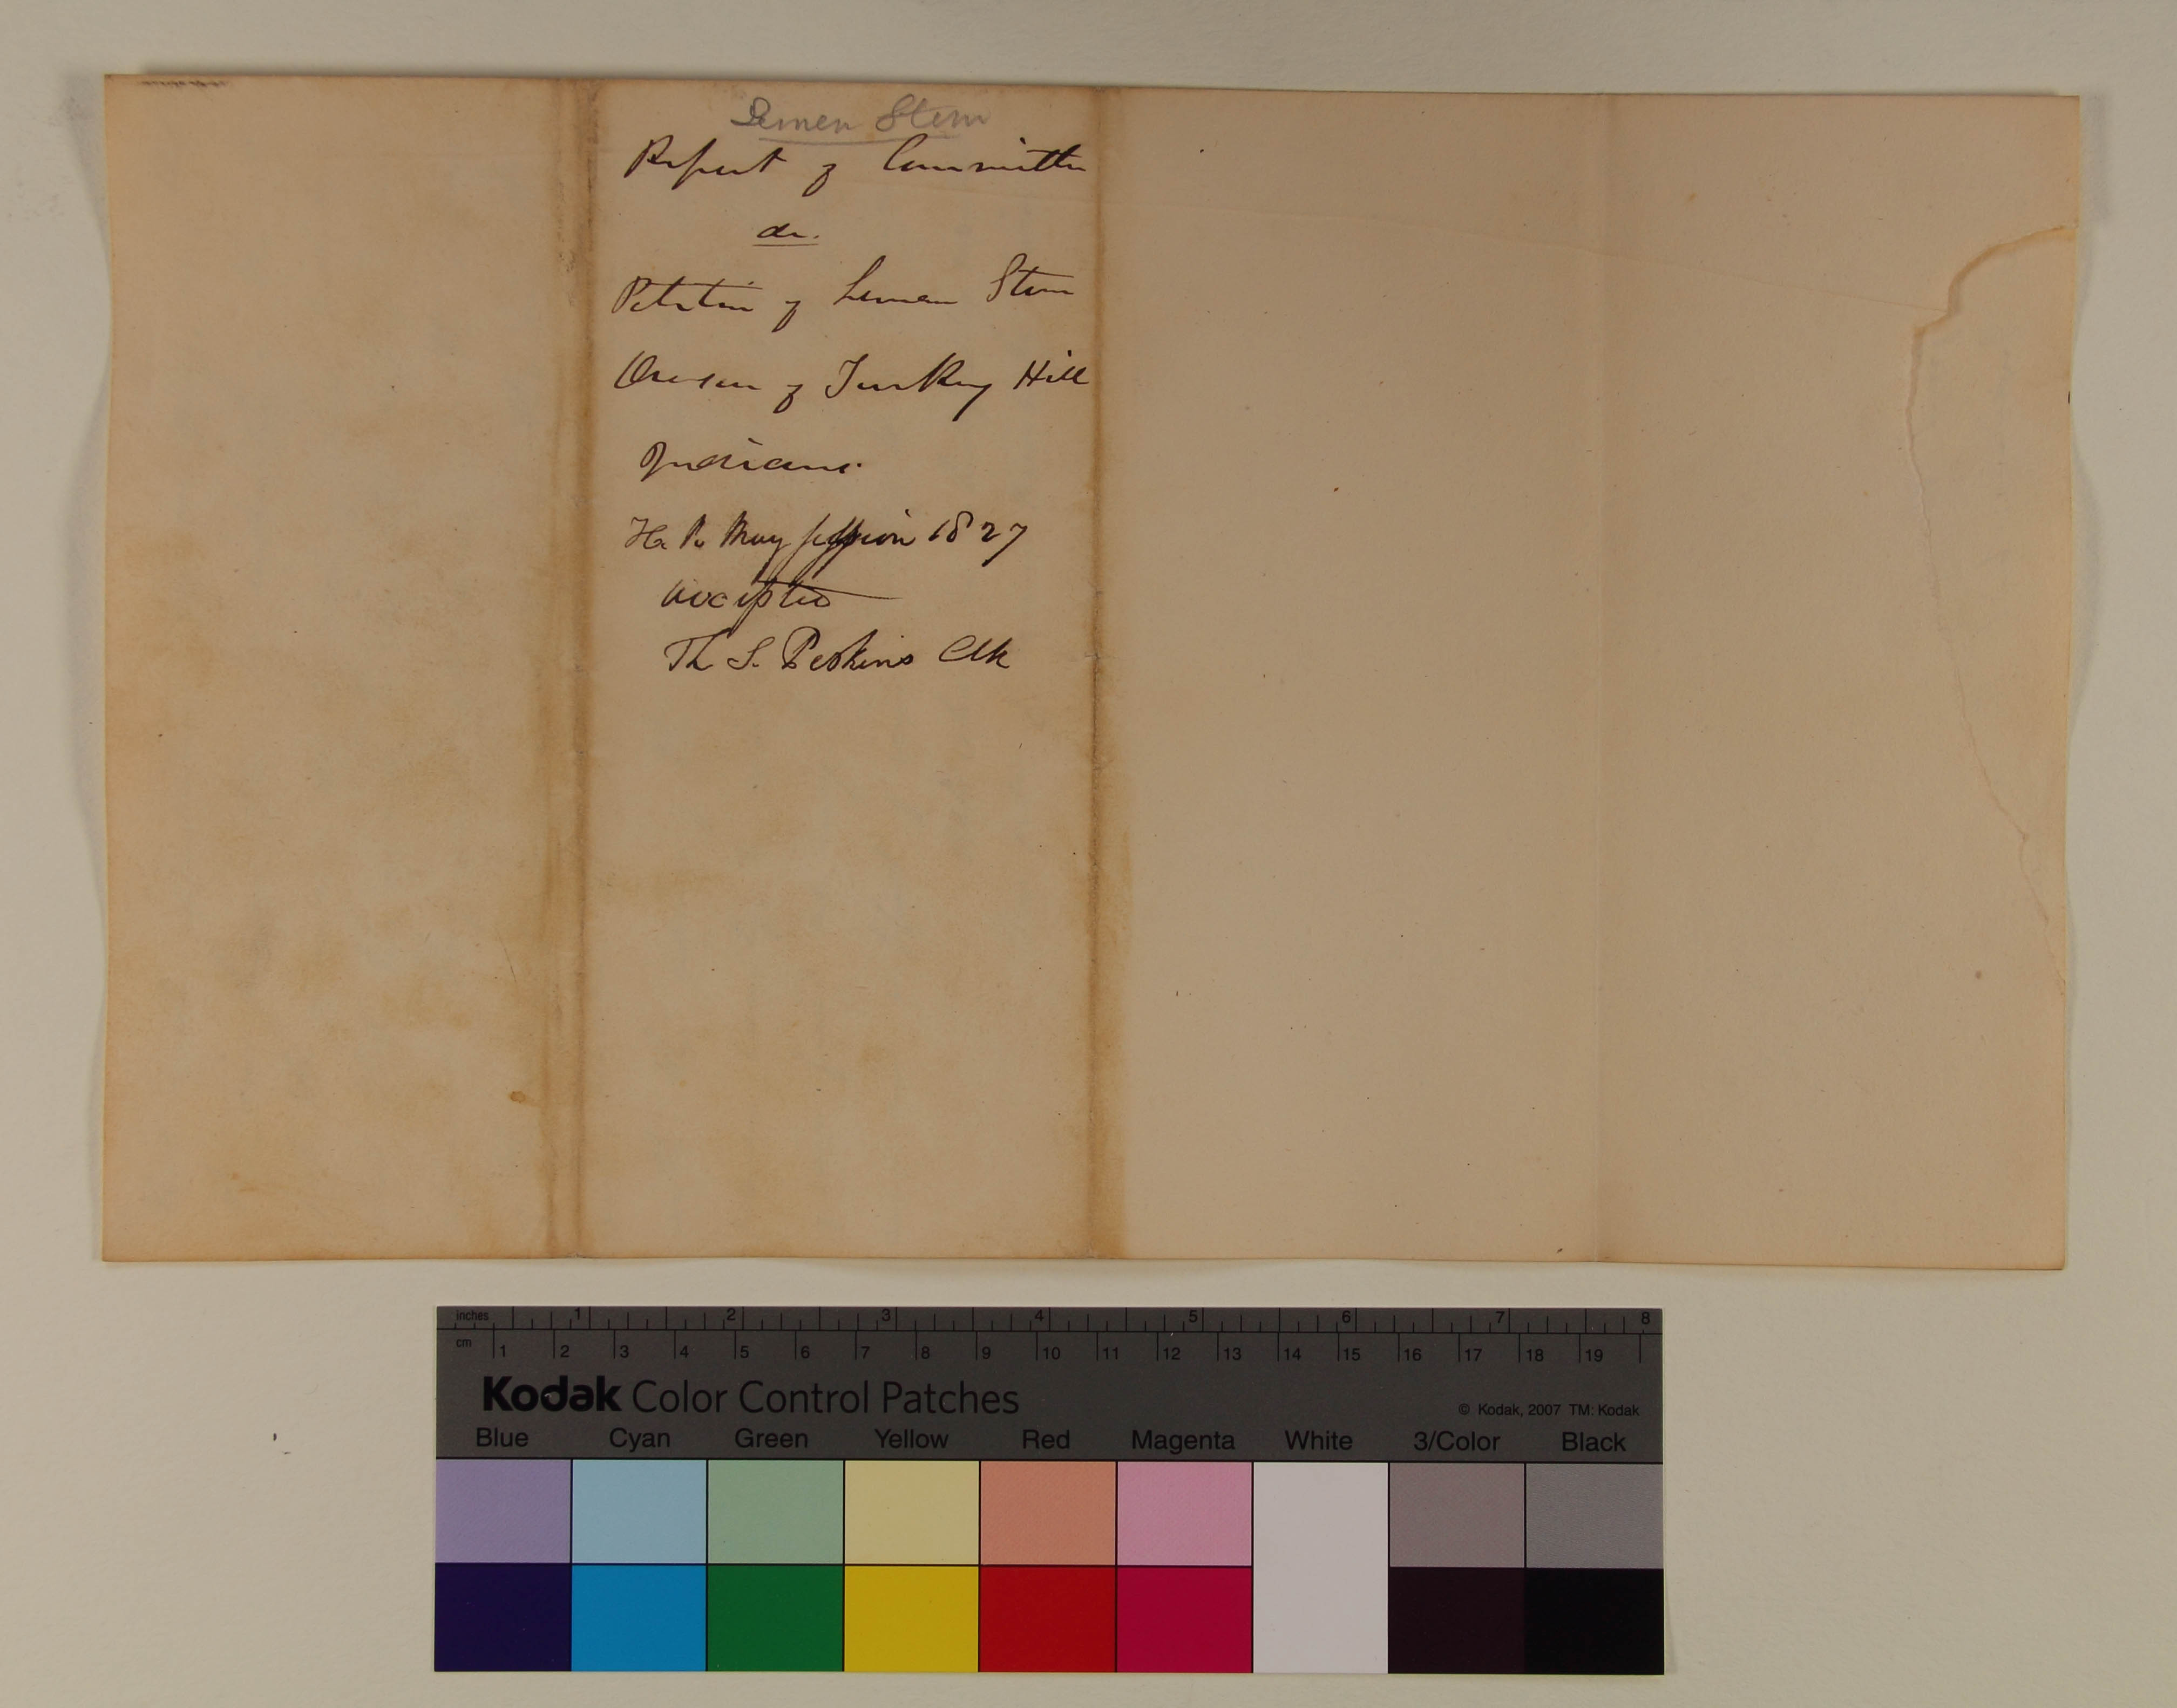 Leman Stone
Report of Committee
on
Petition of Leman Stone
Overseer of Turkey Hill
Indians.
H. R. May Session 1827
Accepted
Th. S. Perkins Clk
inches 1 2 3 4 5 6 7 8
cm 1 2 3 4 5 6 7 8 9 10 11 12 13 14 15 16 17 18 19
Kodak Color Control Patches
© Kodak, 2007 TM: Kodak
Blue Cyan Green Yellow Red Magenta White 3/Color Black